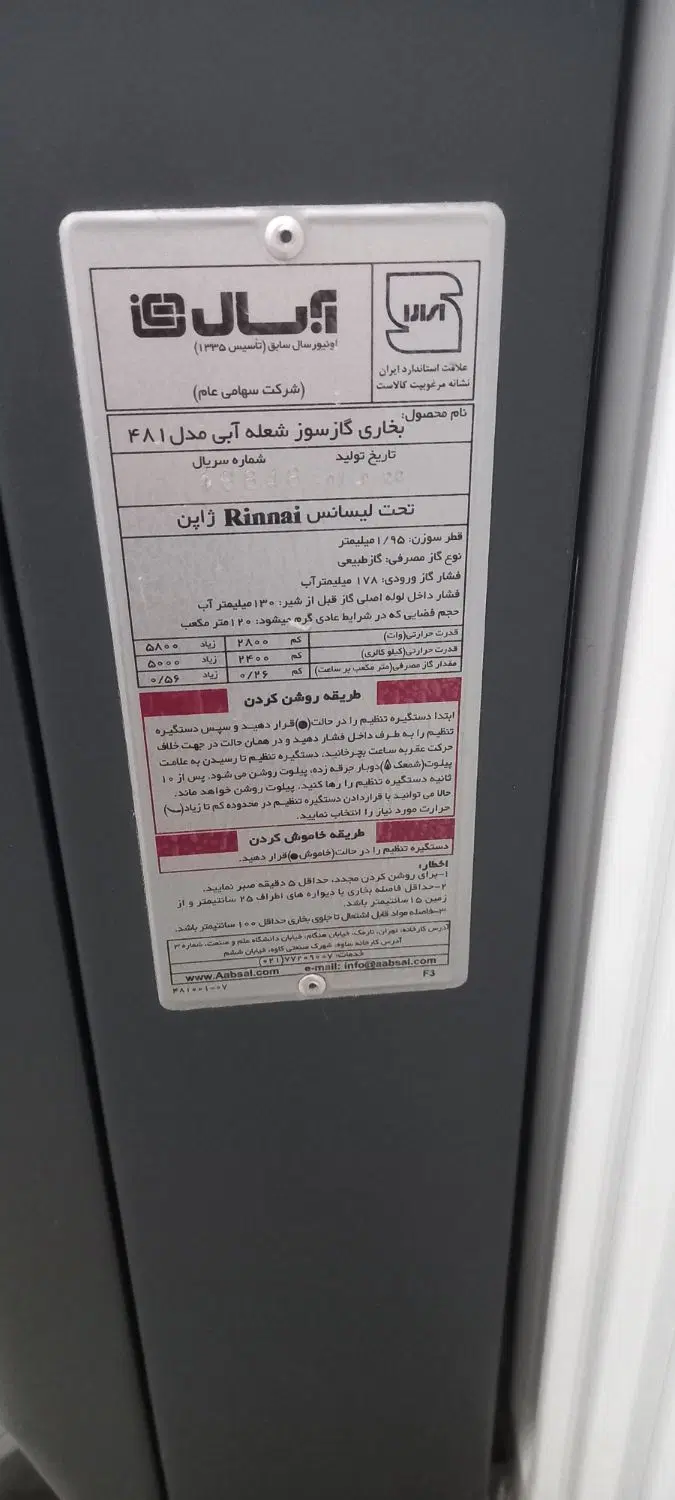 آبسال
اونیورسال سابق (تأسیس ۱۳۳۵)
(شرکت سهامی عام)
علامت استاندارد ایران
نشانه مرغوبیت کالاست
نام محصول: بخاری گازسوز شعله آبی مدل ۴۸۱
تاریخ تولید شماره سریال
تحت لیسانس Rinnai ژاپن
قطر سوزن: ۱/۹۵ میلیمتر
نوع گاز مصرفی: گازطبیعی
فشار گاز ورودی: ۱۷۸ میلیمترآب
فشار داخل لوله اصلی گاز قبل از شیر: ۱۳۰ میلیمتر آب
حجم فضایی که در شرایط عادی گرم میشود: ۱۲۰ متر مکعب
قدرت حرارتی(وات) کم ۲۸۰۰ زیاد ۵۸۰۰
قدرت حرارتی(کیلو کالری) کم ۲۴۰۰ زیاد ۵۰۰۰
مقدار گاز مصرفی(متر مکعب بر ساعت) کم ۰/۲۶ زیاد ۰/۵۶
طریقه روشن کردن
ابتدا دستگیره تنظیم را در حالت(●)قرار دهید و سپس دستگیره
تنظیم را به طرف داخل فشار دهید و در همان حالت در جهت خلاف
حرکت عقربه ساعت بچرخانید. دستگیره تنظیم تا رسیدن به علامت
پیلوت(شمعک)دوبار جرقه زده، پیلوت روشن می شود. پس از ۱۰
ثانیه دستگیره تنظیم را رها کنید. پیلوت روشن خواهد ماند.
حالا می توانید با قراردادن دستگیره تنظیم در محدوده کم تا زیاد
حرارت مورد نیاز را انتخاب نمایید.
طریقه خاموش کردن
دستگیره تنظیم را در حالت(خاموش●)قرار دهید.
اخطار:
۱-برای روشن کردن مجدد، حداقل ۵ دقیقه صبر نمایید.
۲-حداقل فاصله بخاری با دیواره های اطراف ۲۵ سانتیمتر و از
زمین ۱۵ سانتیمتر باشد.
۳-فاصله مواد قابل اشتعال تا جلوی بخاری حداقل ۱۰۰ سانتیمتر باشد.
آدرس کارخانه: تهران، نارمک، خیابان هنگام، خیابان دانشگاه علم و صنعت، شماره ۳
آدرس کارخانه ساوه: شهرک صنعتی کاوه، خیابان ششم
خدمات: ۷۷۲۰۹۰۰۷(۰۲۱)
www.Aabsal.com e-mail: info@aabsal.com
۴۸۱۰۰۱-۰۷ F3